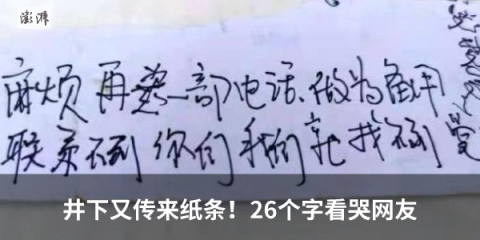 澎湃
麻烦再装一部电话、做为备用
联系不到你们我们就找不到
井下又传来纸条！26个字看哭网友